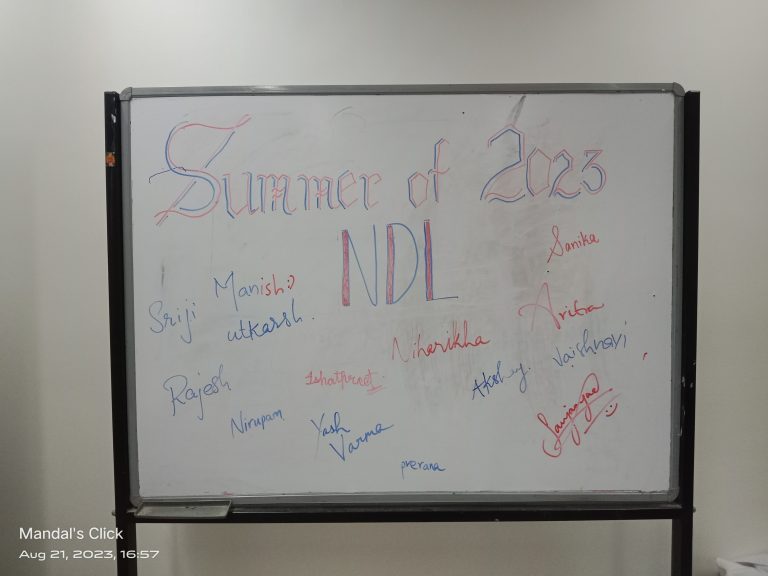 Summer of 2023
NDL
Sanika
Manish:)
Sriji
utkarsh.
Aritra
Niharikha
Vaishnavi
Akshay
Rajesh
Ishatpreet
Nirupam
Yash
Varma
prerana
Mandal's Click
Aug 21, 2023, 16:57